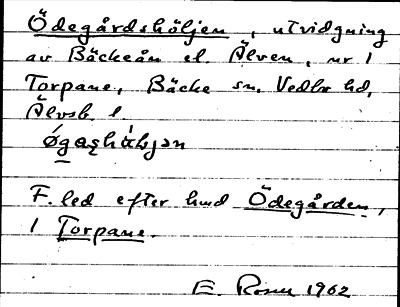 Ödegårdshöljen, utvidgning
av Bäckeån el. Älven, nr 1
Torpane, Bäcke sn, Vedbo hd,
Älvsb. l.
F. led efter hmd Ödegården,
1 Torpane.
E. Rosell 1962